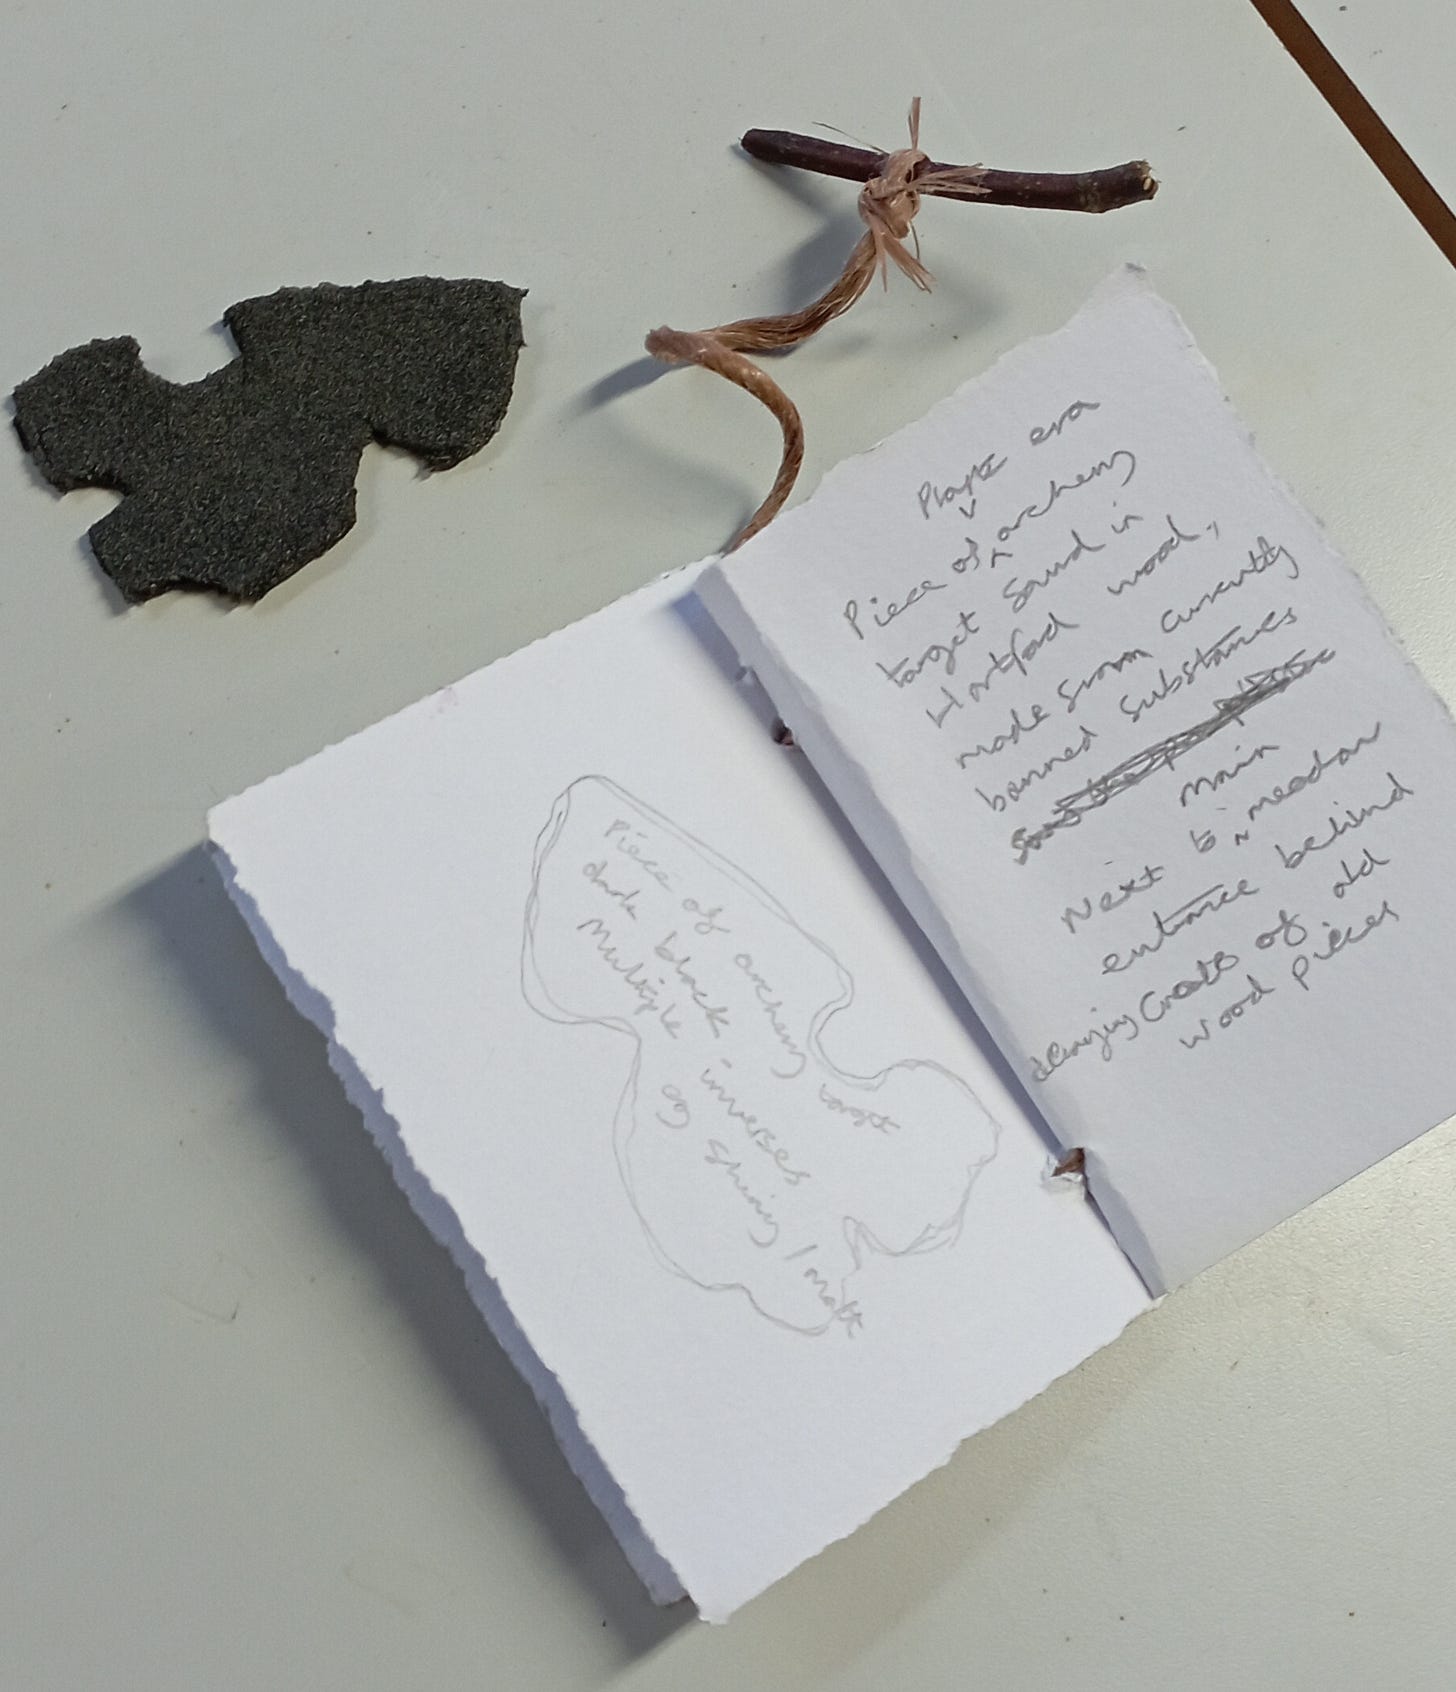 Piece of archery target
dark black -
Multiple inverses
eg shiny / matt
Plastic era
Piece of archery
target found in
wood,
made from currently
banned substances
Next to main meadow
entrance behind
decaying Crates of old
wood pieces